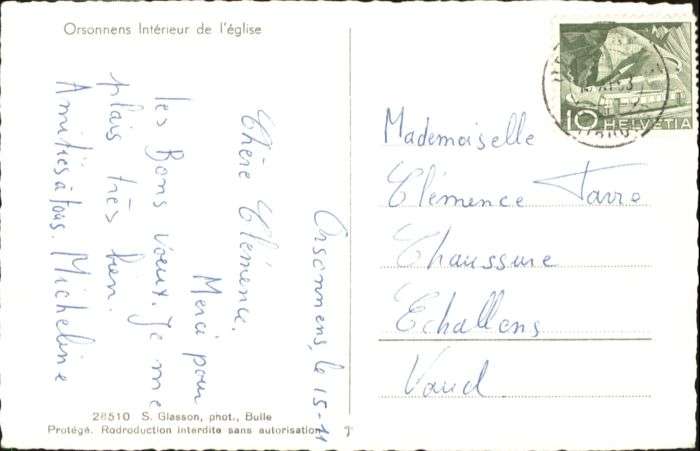 Orsonnens Intérieur de l'église
Orsonnens, le 15-11
Chère Clémence.
Merci pour
les Bons voeux. Je me
plais très bien.
Amitiés à tous. Micheline
10 HELVETIA
53
Mademoiselle
Clémence Favre
Chaussure
Echallens
Vaud.
28510 S. Glasson, phot., Bulle
Protégé. Rodroduction interdite sans autorisation